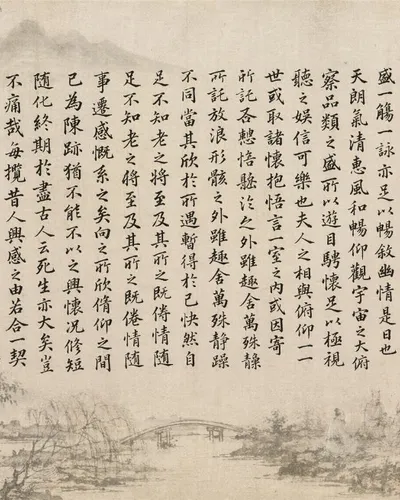 盛一觴一詠亦足以暢敘幽情是日也
天朗氣清惠風和暢仰觀宇宙之大俯
察品類之盛所以遊目騁懷足以極視
聽之娛信可樂也夫人之相與俯仰一一
世或取諸懷抱悟言一室之內或因寄
所託各之外雖趣舍萬殊靜
所託放浪形骸之外雖趣舍萬殊静躁
不同當其欣於所遇暫得於己快然自
足不知老之將至及其所之既倦情隨
足不知老之將至及其所之既倦情隨
事遷感慨系之矣向之所欣脩仰之間
已為陳跡猶不能不以之興懷况修短
随化終期於盡古人云死生亦大矣豈
不痛哉每攬昔人興感之由若合一契